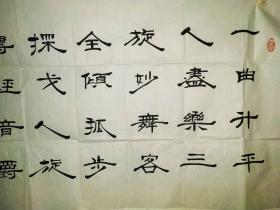 一曲升平
人盡樂三
旋妙舞客
全傾孤步
探戈人旋
音爵